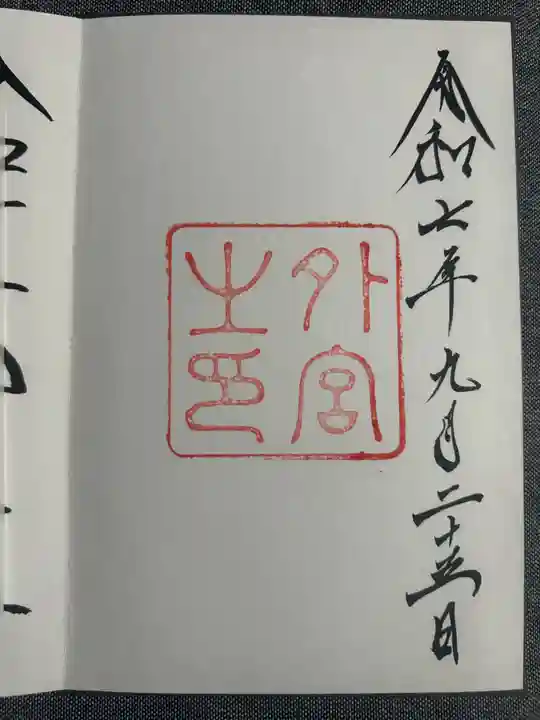 令和七年九月二十五日
外宮
之印